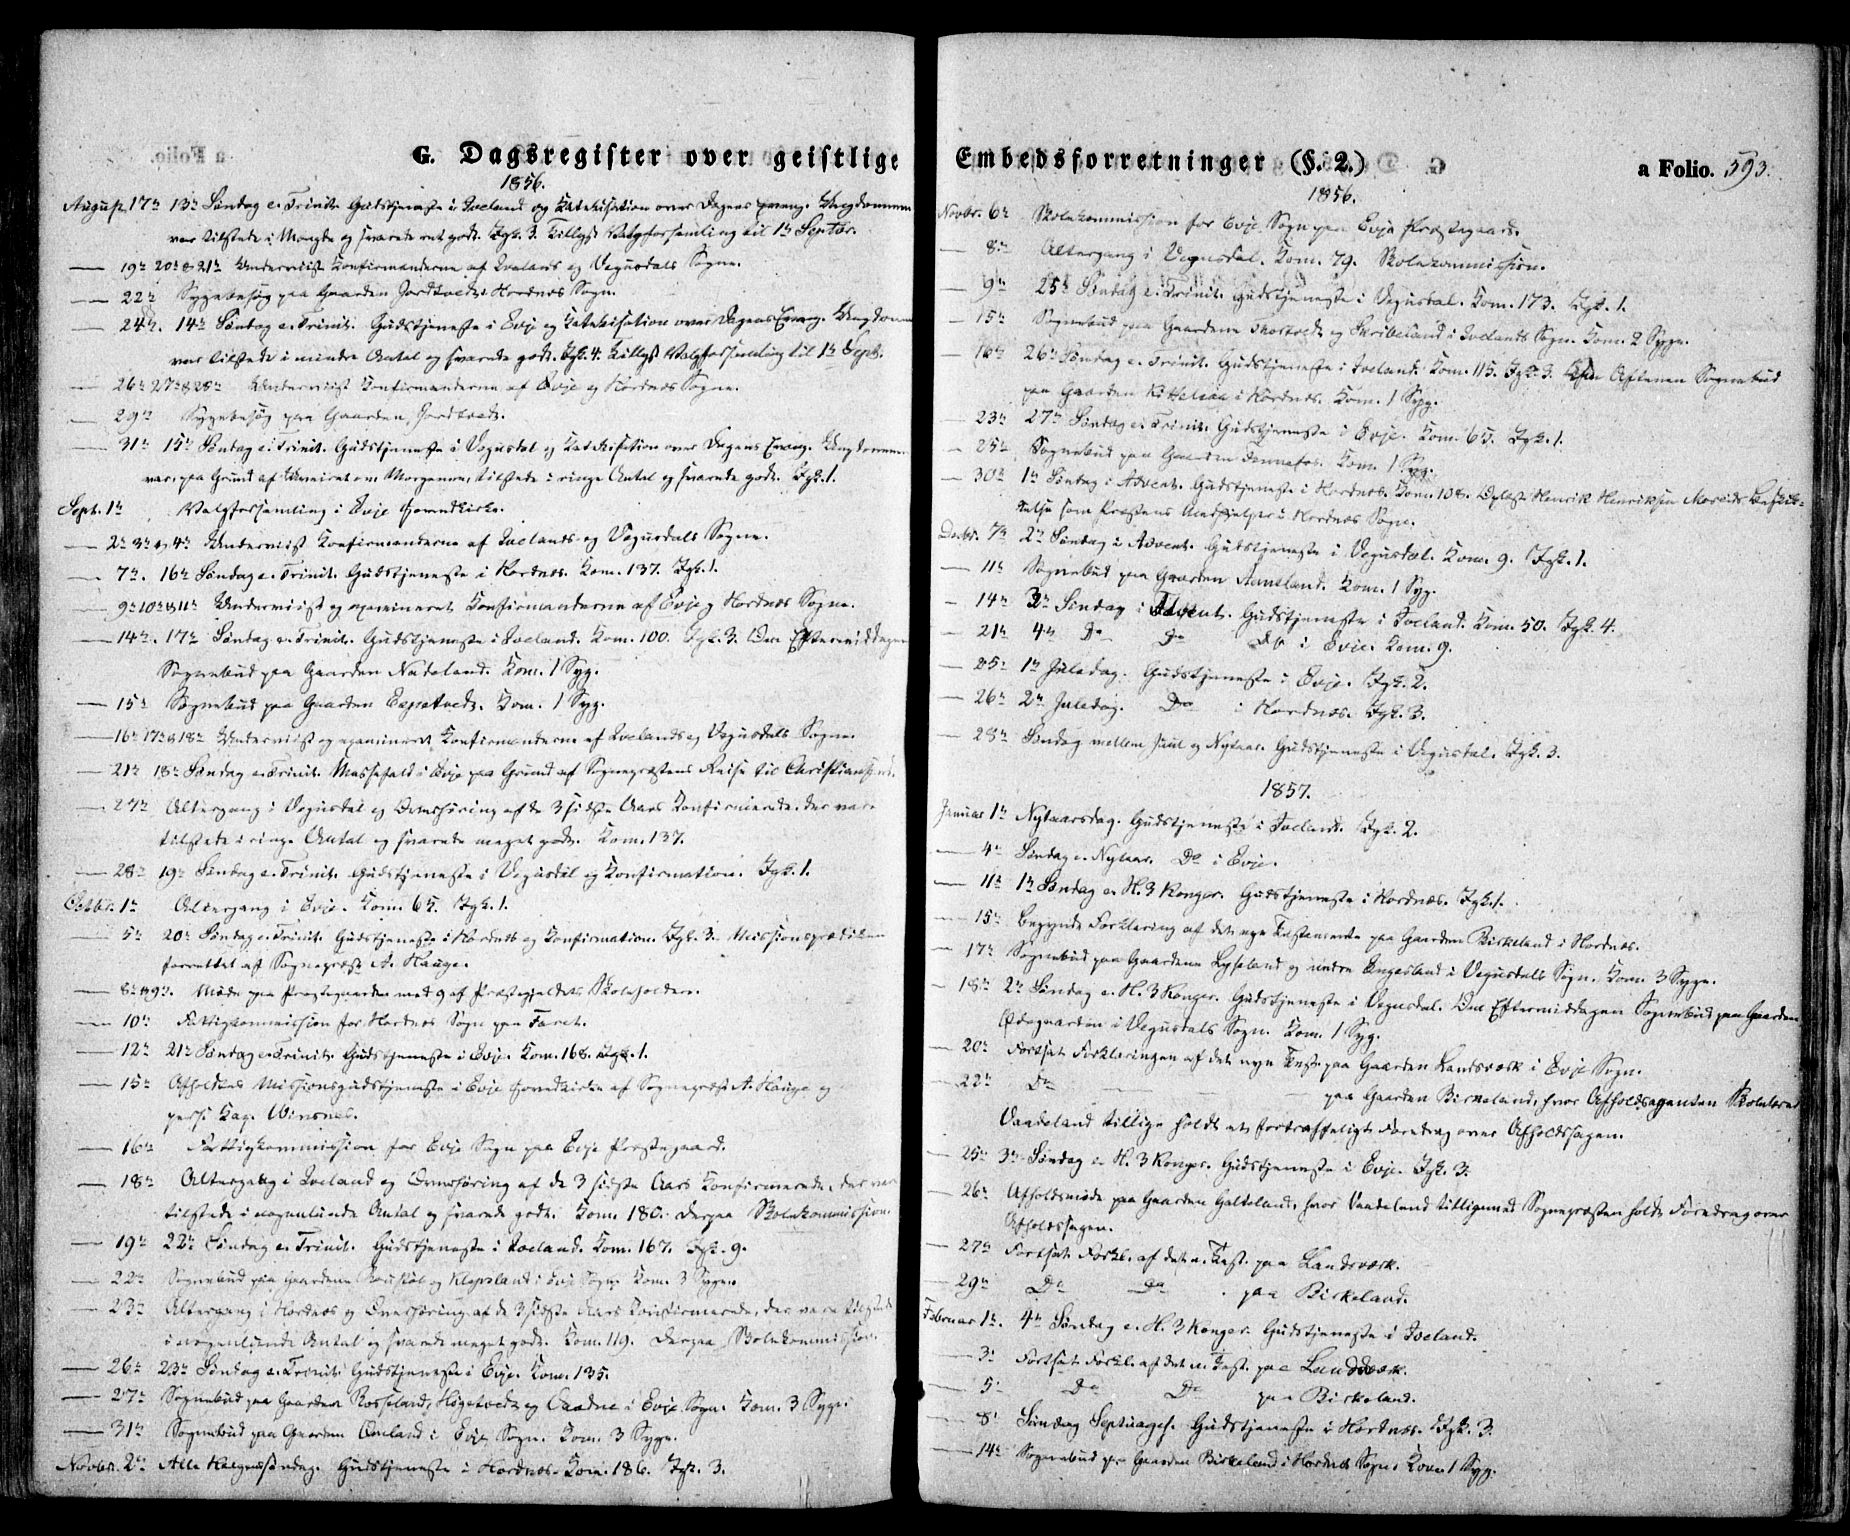 G. Dagsregister over geistlige
1856.
August 17de 13de Søndag e. Trinit. Gudstjeneste i Iveland og Katekisation over Dagens Evang. Ungdommen
var tilstede i Mængde og svarede ret godt. Igt. 3. Tillyst Valgforsamling til 1ste Septbr.
— 19de 20de & 21de Underviist Konfirmanderne af Ivelands og Vegusdals Sogne.
— 22de Sygebesøg paa Gaarden i Hordnæs Sogn.
— 24de. 14de Søndag e. Trinit. Gudstjeneste i Evje og Katekisation over Dagens Evang. Ungdommen
var tilstede i mindre Antal og svarede godt. Igt. 4. Tillyst Valgforsamling til 1ste Sept.
— 26de 27de & 28de Underviist Konfirmanderne af Evje og Hordnæs Sogne.
— 29de Sygebesøg paa Gaarden
— 31te 15de Søndag e. Trinit. Gudstjeneste i Vegusdal og Katekisation over Dagens Evang. Ungdommen
var, paa Grund af Uveiret om Morgenen, tilstede i ringe Antal og svarede godt. Igt. 1.
Sept. 1ste Valgforsamling i Evje Hovedkirke.
— 2de 3die og 4de Underviist Konfirmanderne af Ivelands og Vegusdals Sogne.
— 7de. 16de Søndag e. Trinit. Gudstjeneste i Hordnæs. Kom. 137. Igt. 1.
— 9de 10de & 11te Underviist og examineret Konfirmanderne af Evje og Hordnæs Sogne.
— 14de. 17de Søndag e. Trinit. Gudstjeneste i Iveland. Kom. 100. Igt. 3. Om Eftermiddagen
Sognebud paa Gaarden Nateland. Kom. 1 Syg.
— 15de Sognebud paa Gaarden Espetvedt. Kom. 1 Syg.
— 16de 17de & 18de Underviist og examineret Konfirmanderne af Ivelands og Vegusdals Sogne.
— 21de 18de Søndag e. Trinit. Messefald i Evje paa Grund af Sognepræstens Reise til Christianssand.
— 27de Altergang i Vegusdal og Overhøring af de 3 sidste Aars Konfirmerede, der vare
tilstede i ringe Antal og svarede meget godt. Kom. 137.
— 28de 19de Søndag e. Trinit. Gudstjeneste i Vegusdal og Konfirmation. Igt. 1.
Octbr. 1ste Altergang i Evje. Kom. 65. Igt. 1.
— 5te 20de Søndag e. Trinit. Gudstjeneste i Hordnæs og Konfirmation. Igt. 3. Missionsprædiken
forrettet af Sognepræst A. Hauge.
— 8de & 9de. Møde paa Præstegaarden med 9 af Præstegjeldets Skoleholdere.
— 10de Fattigkommission for Hordnæs Sogn paa Faret.
— 12te 21de Søndag e. Trinit. Gudstjeneste i Evje. Kom. 168. Igt. 1.
— 15de Afholdtes Missionsgudstjeneste i Evje Hovedkirke af Sognepræst A. Hauge og
pers. Kap. Winsnes.
— 16de Fattigkommission for Evje Sogn paa Evje Præstegaard.
— 18de Altergang i Iveland og Overhøring af de 3 sidste Aars Konfirmerede, der var
tilstede i nogenlunde Antal og svarede godt. Kom. 180. Derpaa Skolekommission.
— 19de 22de Søndag e. Trinit. Gudstjeneste i Iveland. Kom. 167. Igt. 9.
— 22de Sognebud paa Gaardene og Klepsland i Evje Sogn. Kom. 3 Syge.
— 23de Altergang i Hordnæs og Overhøring af de 3 sidste Aars Konfirmerede, der vare tilstede
i nogenlunde Antal og svarede meget godt. Kom. 119. Derpaa Skolekommission.
— 26de 23de Søndag e. Trinit. Gudstjeneste i Evje. Kom. 135.
— 27de Sognebud paa Gaardene Rosseland, Høgetvedt og i Evje Sogn. Kom. 3 Syge.
— 31te Sognebud paa Gaarden Omland i Evje Sogn. Kom. 3 Syge.
Novbr. 2den Alle Helgenssøndag. Gudstjeneste i Hordnæs. Kom. 186. Igt. 3.
Embedsforretninger (§. 2.)
a Folio. 593.
1856.
Novbr. 6te Skolekommission for Evje Sogn paa Evje Præstegaard.
— 8de Altergang i Vegusdal. Kom. 79. Skolekommission.
— 9de 25de Søndag e. Trinit. Gudstjeneste i Vegusdal. Kom. 173. Igt. 1.
— 15de Sognebud paa Gaardene Thortvedt og Skribeland i Ivelands Sogn. Kom. 2 Syge.
— 16de 26de Søndag e. Trinit. Gudstjeneste i Iveland. Kom. 115. Igt. 3. Om Aftenen Sognebud
paa Gaarden Kittelsaa i Hordnæs. Kom. 1 Syg.
— 23de 27de Søndag e. Trinit. Gudstjeneste i Evje. Kom. 65. Igt. 1.
— 25de Sognebud paa Gaarden Kom. 1 Syg.
— 30te 1ste Søndag i Advent. Gudstjeneste i Hordnæs. Kom. 108. Oplæste Henrik Henriksen Beskik-
kelse som Præstens Medhjelper i Hordnæs Sogn.
Decbr. 7de 2den Søndag i Advent. Gudstjeneste i Vegusdal. Kom. 9. Igt. 1.
— 11te Sognebud paa Gaarden Aaneland. Kom. 1 Syg.
— 14de 3die Søndag i Advent. Gudstjeneste i Iveland. Kom. 50. Igt. 4.
— 21de 4de Do Do Do i Evje. Kom. 9.
— 25de 1ste Juledag. Gudstjeneste i Evje. Igt. 2.
— 26de 2den Juledag. Do i Hordnæs. Igt. 3.
— 28de Søndag mellem Juul og Nytaar. Gudstjeneste i Vegusdal. Igt. 3.
1857.
Januar 1ste Nytaarsdag. Gudstjeneste i Iveland. Igt. 2.
— 4de Søndag e. Nytaar. Do i Evje.
— 11te 1ste Søndag e. H. 3 Konger. Gudstjeneste i Hordnæs. Igt. 1.
— 15de Begyndte Forklaring af det nye Testamente paa Gaarden Birkeland i Hordnæs.
— 17de Sognebud paa Gaardene Lyseland og indre Engesland i Vegusdals Sogn. Kom. 3 Syge.
— 18de 2den Søndag e. H. 3 Konger. Gudstjeneste i Vegusdal. Om Eftermiddagen Sognebud paa Gaarden
Ødegaarden i Vegusdals Sogn. Kom. 1 Syg.
— 20de Fortsat Forklaringen af det nye Test. paa Gaarden Landsværk i Evje Sogn.
— 22de Do — — paa Gaarden Birkeland, hvor Afholdsagenten Skolelærer
Vaadeland tillige holdt et fortræffeligt Foredrag over Afholdssagen.
— 25de 3die Søndag e. H. 3 Konger. Gudstjeneste i Evje. Igt. 3.
— 26de Afholdsmøde paa Gaarden Galteland, hvor Vaadeland tilligemed Sognepræsten holdt Foredrag over
Afholdssagen.
— 27de Fortsat Forkl. af det n. Test. paa Landsværk.
— 29de Do Do. paa Birkeland.
Februar 1ste. 4de Søndag e. H. 3 Konger. Gudstjeneste i Iveland.
— 3die Fortsat Forkl. af det n. Test. paa Landsværk.
— 5te Do Do paa Birkeland.
— 8de Søndag Septuages. Gudstjeneste i Hordnæs. Igt. 3.
— 14de Sognebud paa Gaarden Birkeland i Hordnæs Sogn. Kom. 1 Syg.